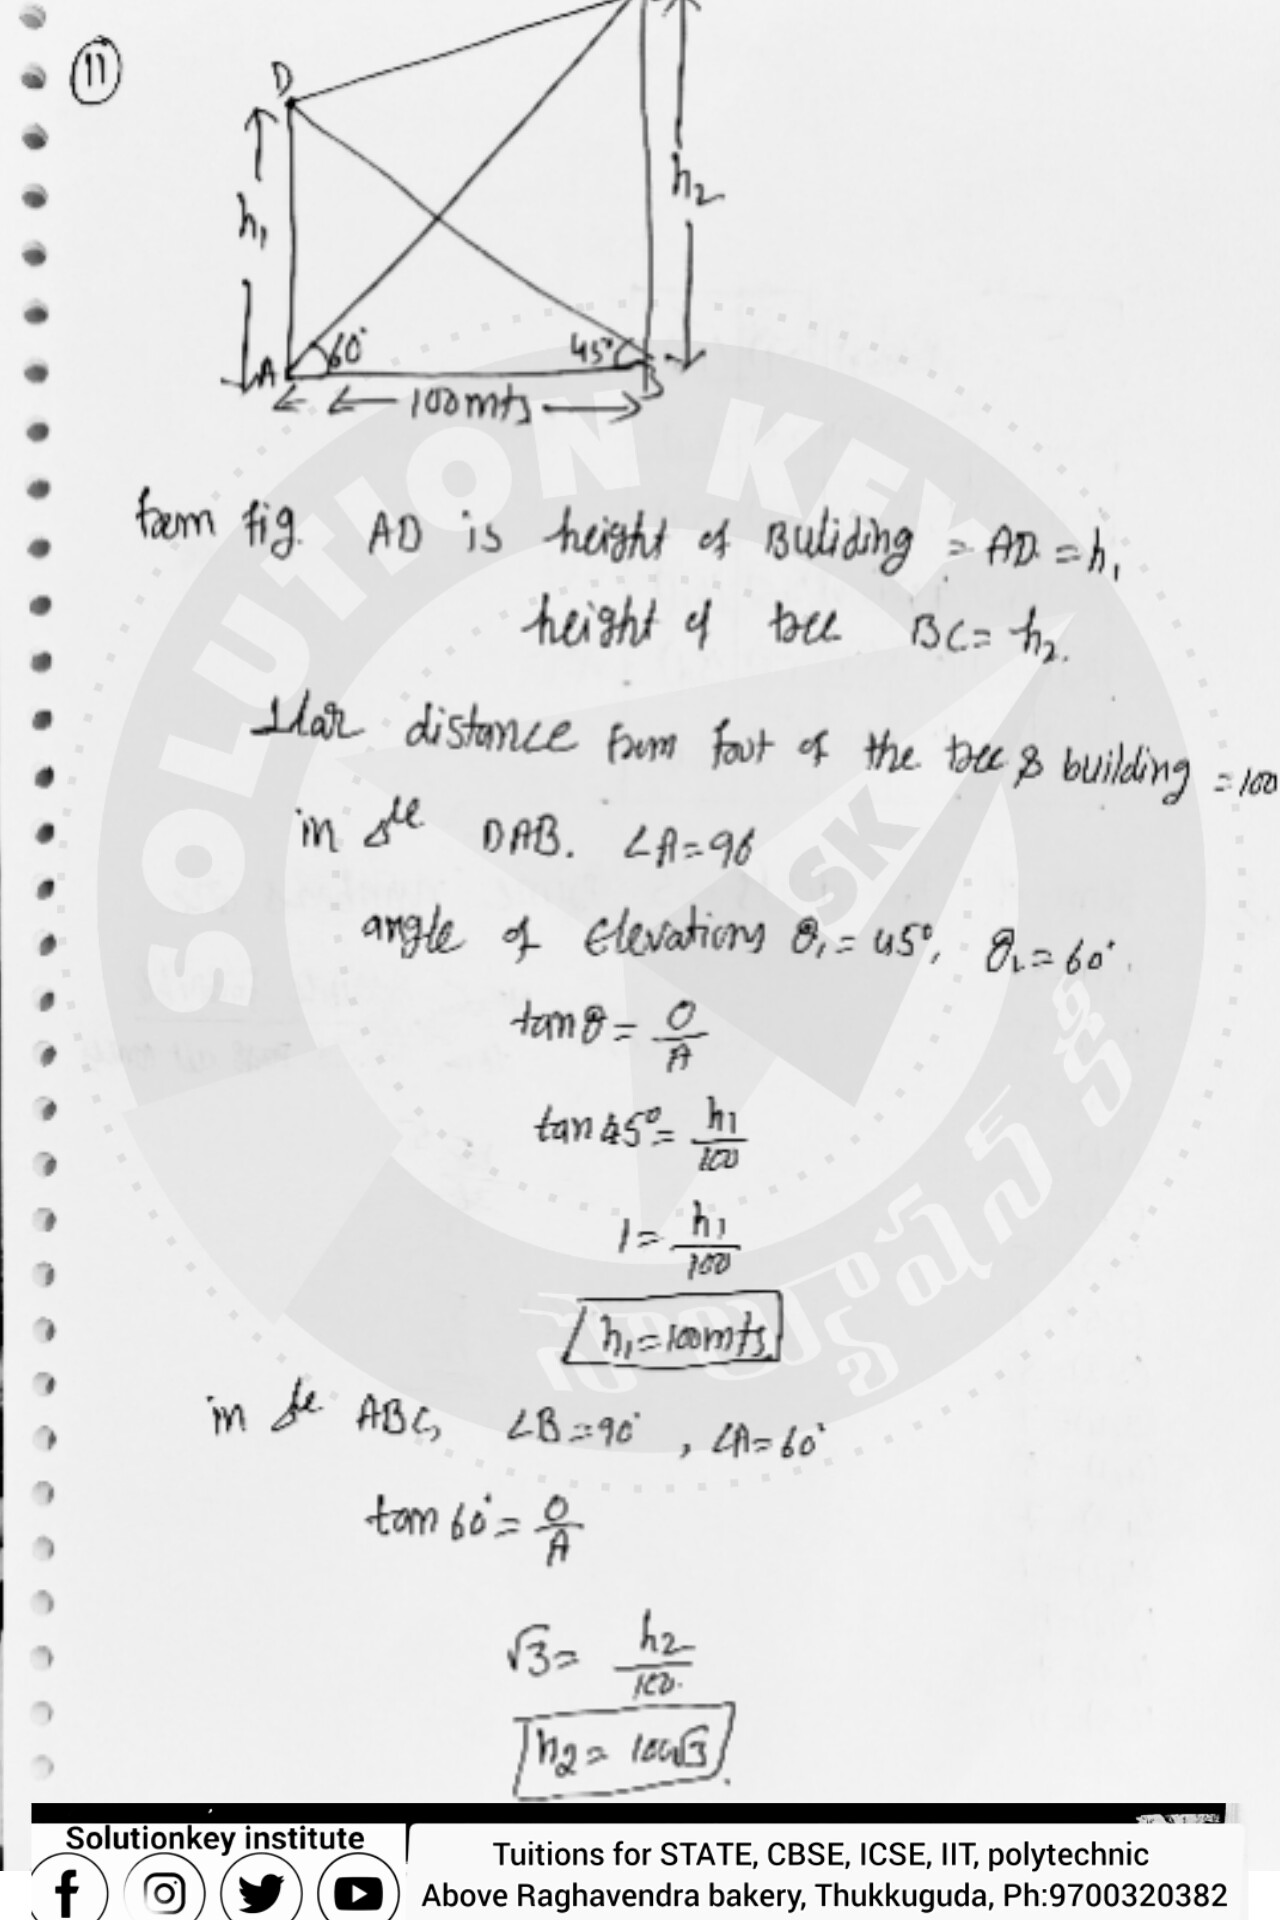 11
D
h₁
h₂
60°
45°
A
B
100mts
from fig. AD is height of Buliding = AD = h₁
height of tree BC = h₂.
⊥lar distance from foot of the tree & building = 100
in △le DAB. ∠A = 90
angle of Elevations θ₁ = 45°, θ₂ = 60°.
tan θ = O/A
tan 45° = h₁/100
1 = h₁/100
h₁ = 100mts
in △le ABC, ∠B = 90°, ∠A = 60°
tan 60° = O/A
√3 = h₂/100.
h₂ = 100√3.
SOLUTION KEY
SK
సొల్యూషన్ కీ
Solutionkey institute
Tuitions for STATE, CBSE, ICSE, IIT, polytechnic
Above Raghavendra bakery, Thukkuguda, Ph:9700320382